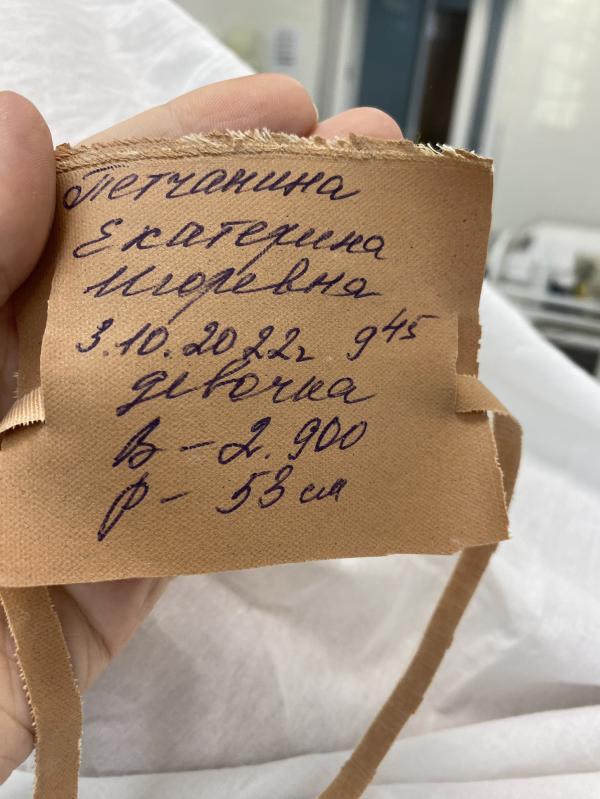 Петчанина
Екатерина
Игоревна
3.10.2022г 9 45
девочка
В – 2.900
р – 53 см